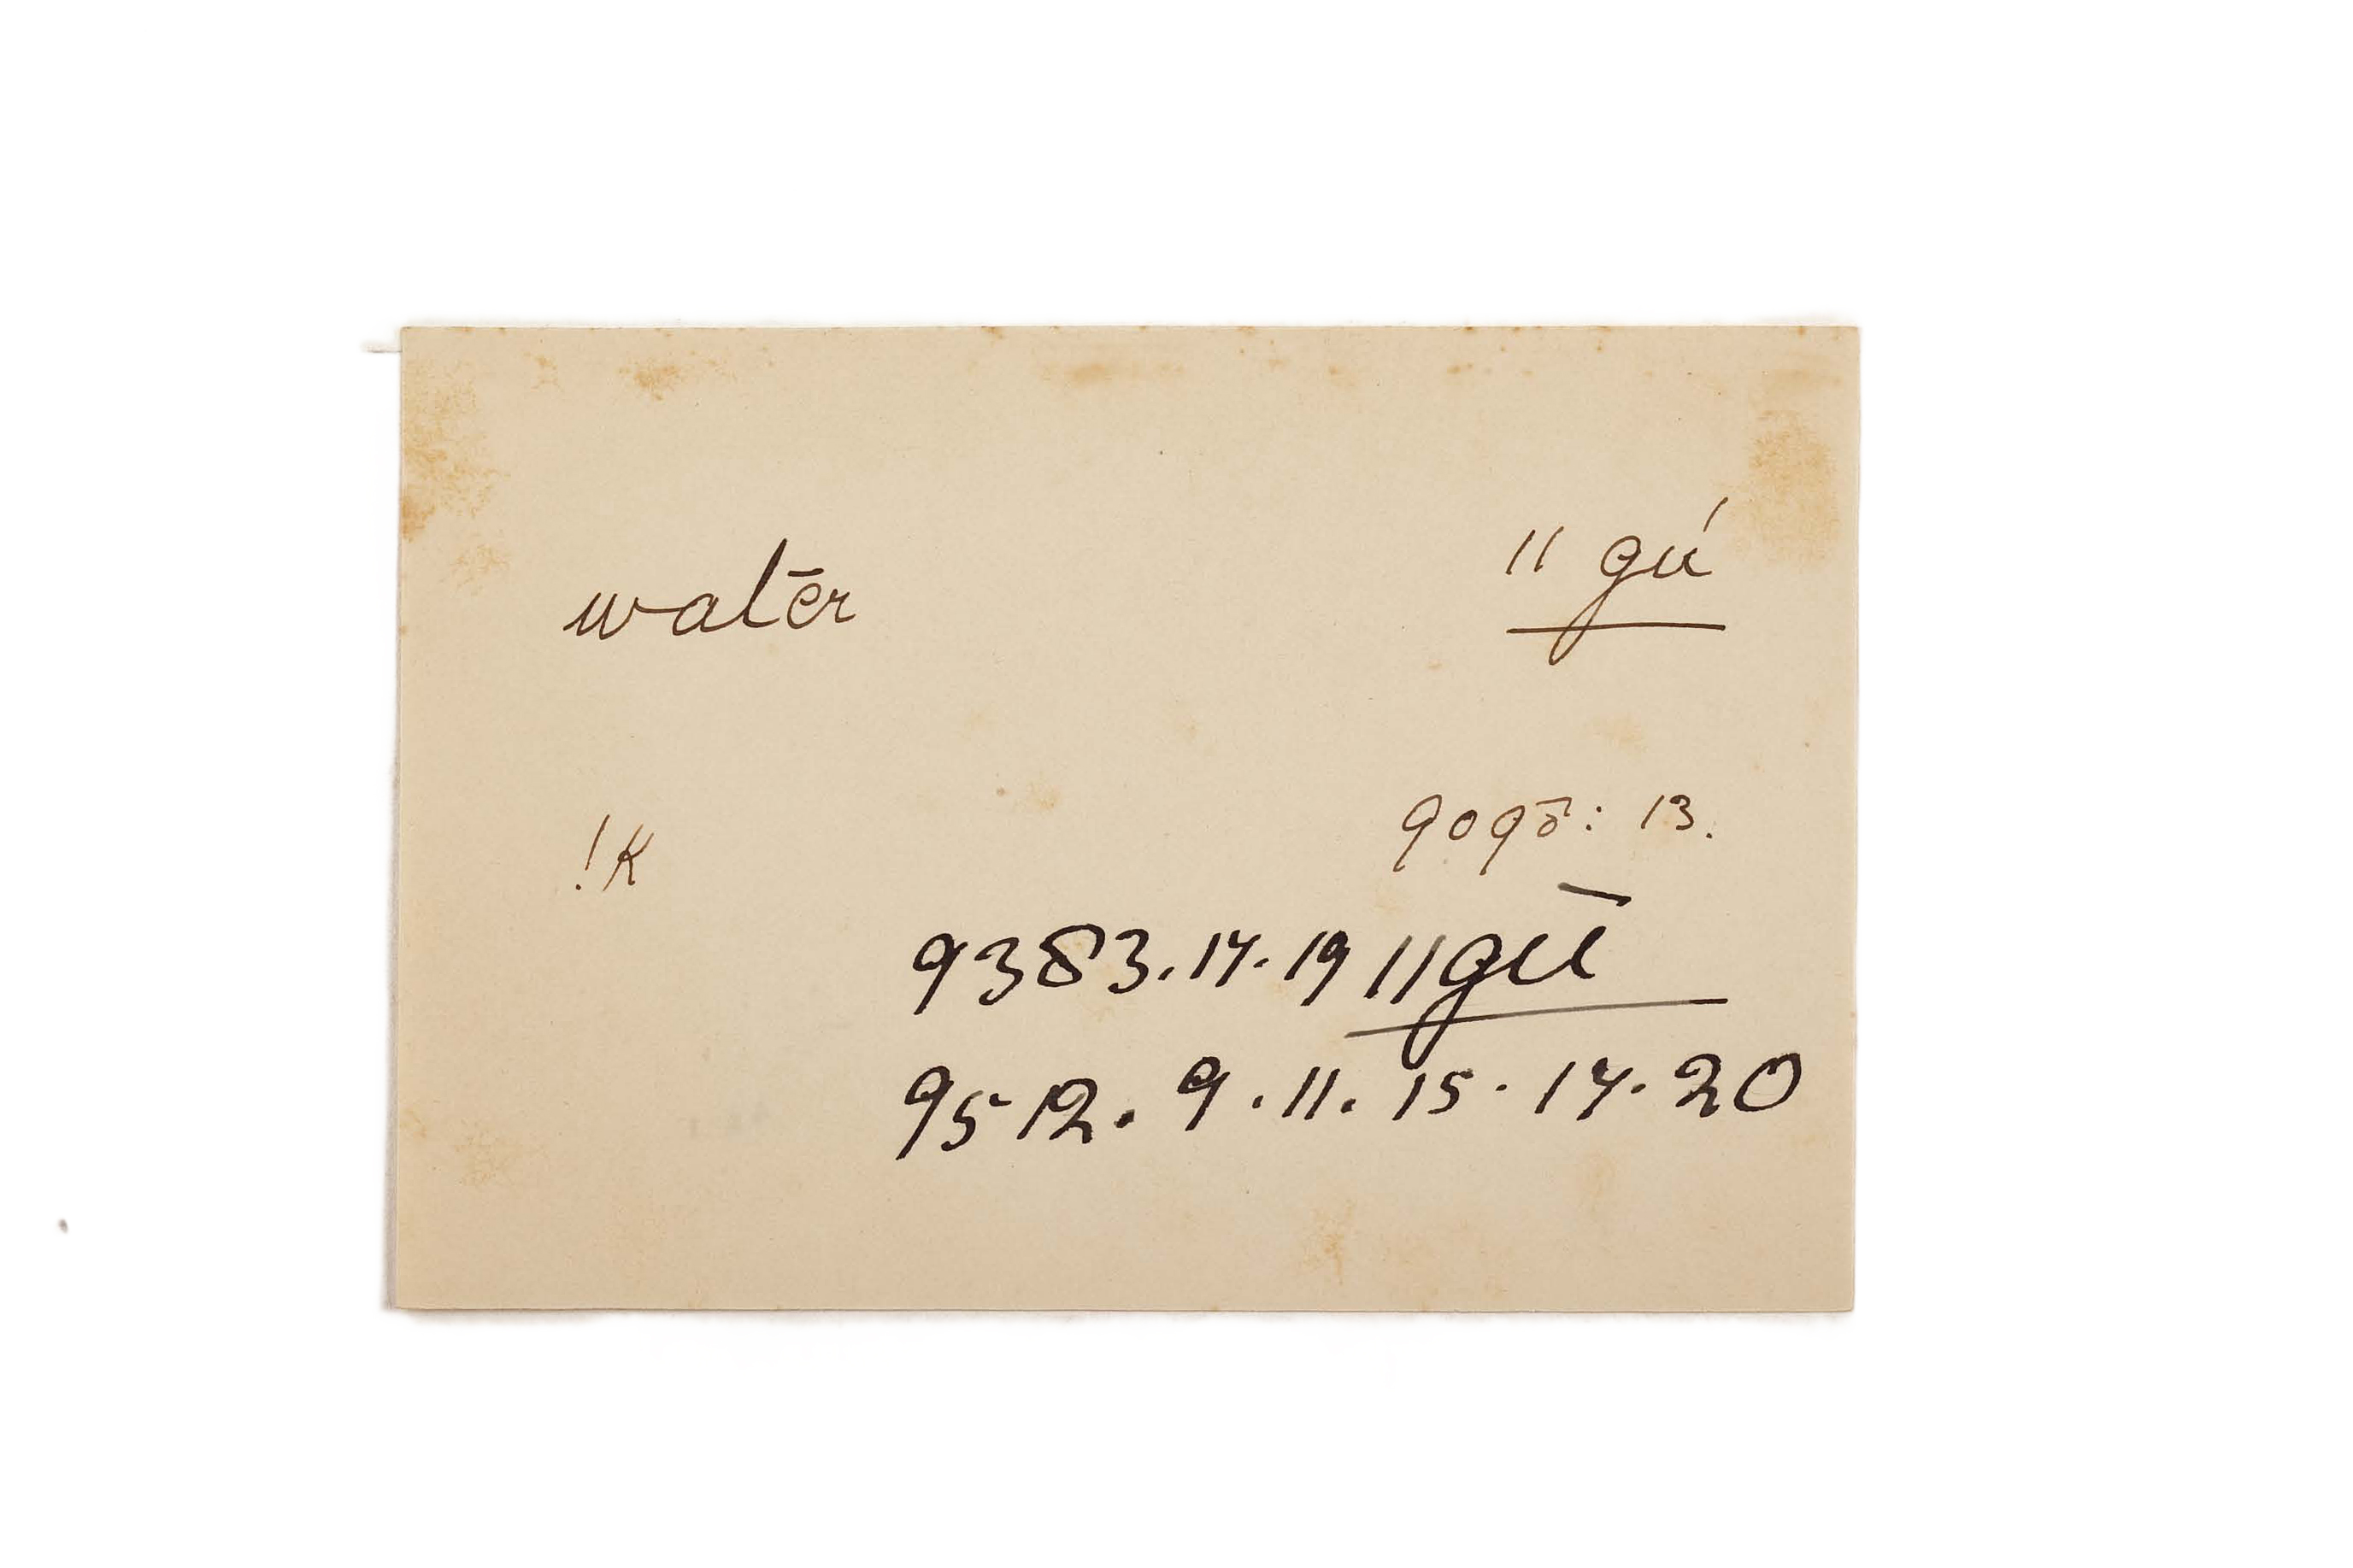 water ǁ gú
!K 9098: 13.
9383.17.19 ǁgū
9512. 9. 11. 15. 17. 20